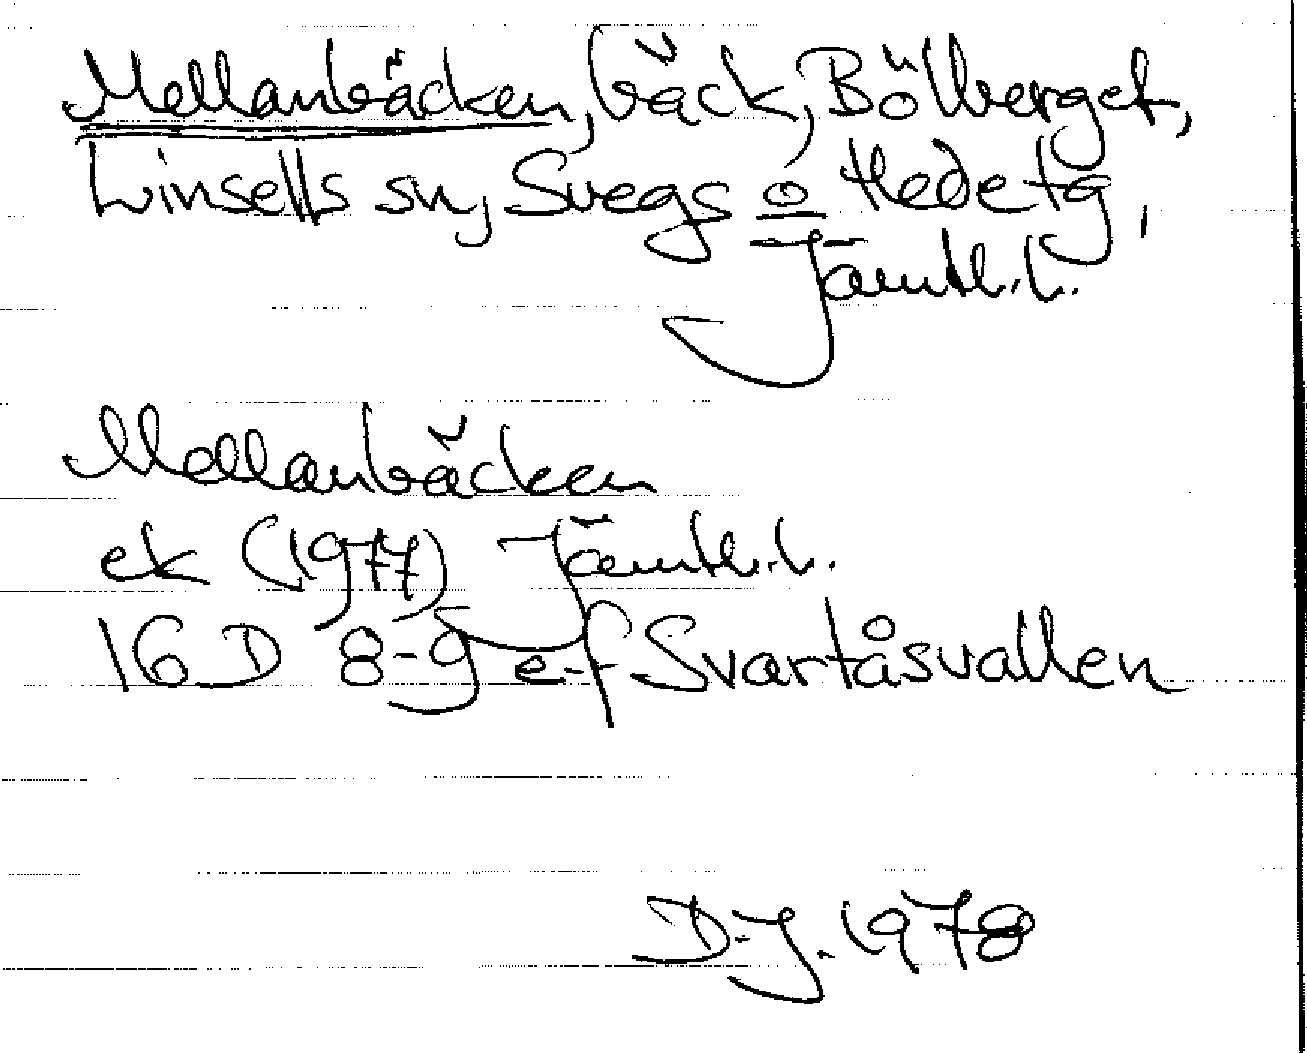 Mellanbäcken, bäck, Bölberget,
Linsells sn, Svegs o Hede tg,
Jämtl. l.
Mellanbäcken
ek (1977) Jämtl. l.
16 D 8-9 e-f Svartåsvallen
D. J. 1978